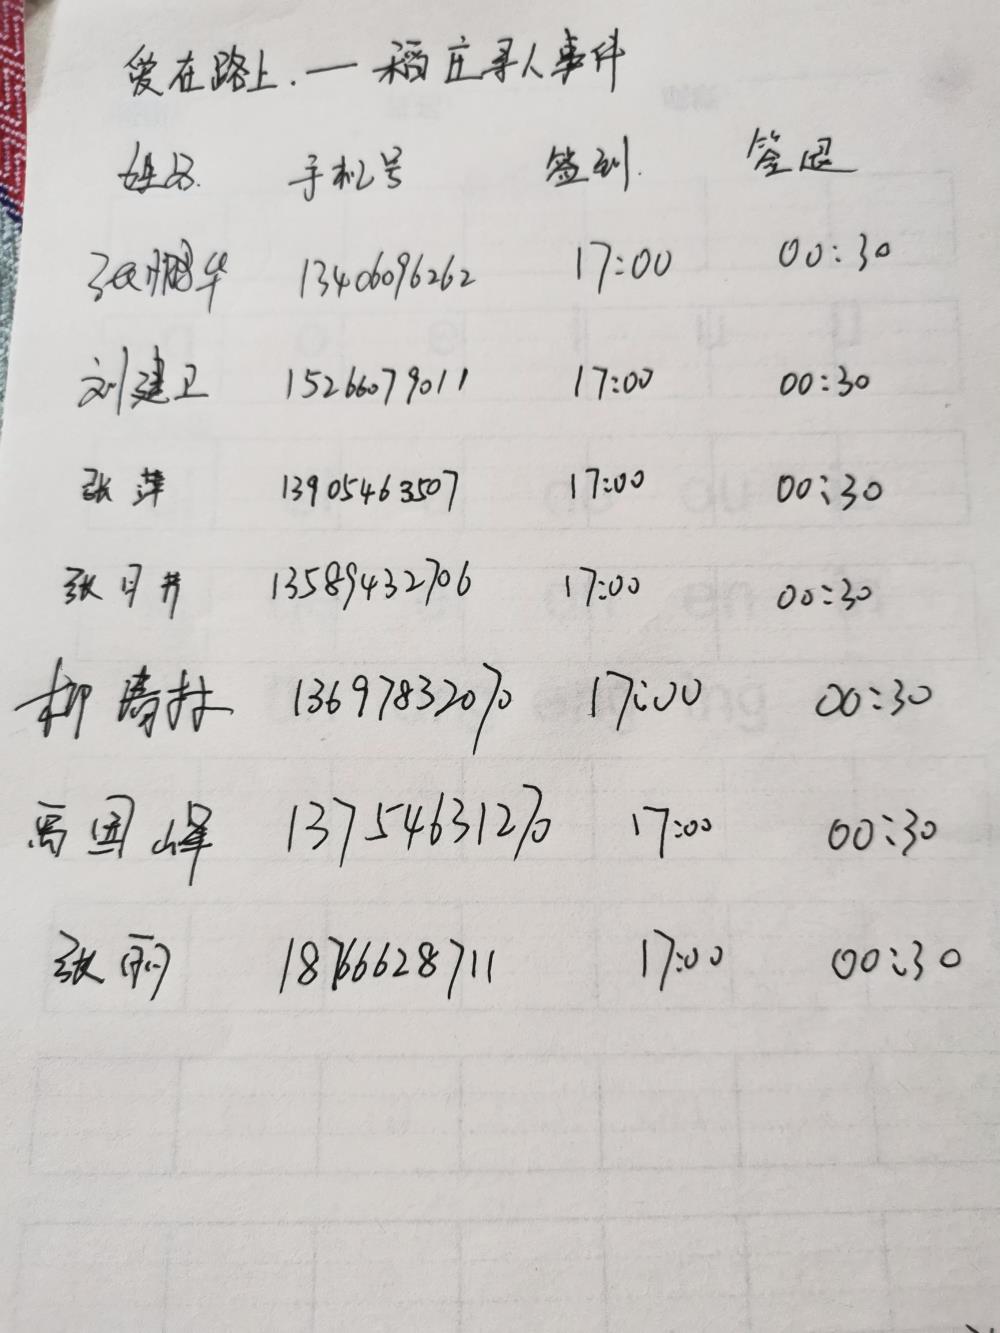 爱在路上.—稻庄寻人事件
姓名. 手机号 签到. 签退
张鹏华 13406096262 17:00 00:30
刘建卫 15266079011 17:00 00:30
张萍 13905463507 17:00 00:30
张月井 13589432706 17:00 00:30
柳涛林 13697832070 17:00 00:30
马国峰 13754631270 17:00 00:30
张丽 18766628711 17:00 00:30